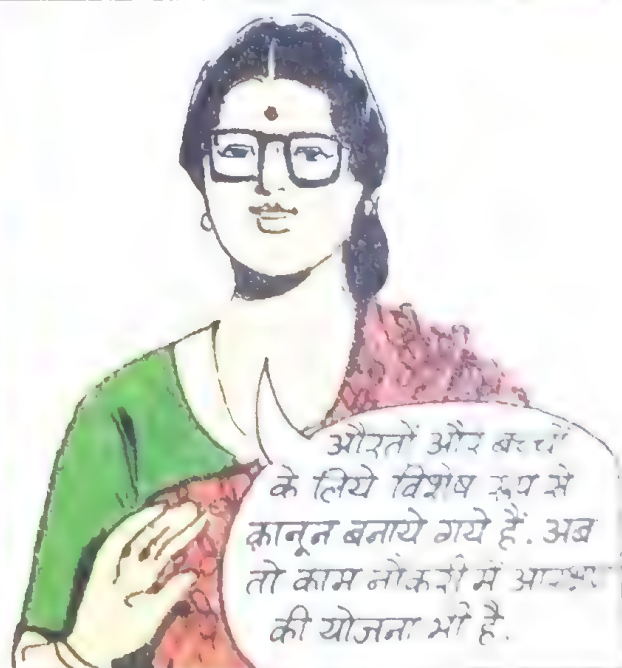 औरतों और बच्चों
के लिये विशेष रूप से
क़ानून बनाये गये हैं. अब
तो काम नौकरी में आरक्षण
की योजना भी है.